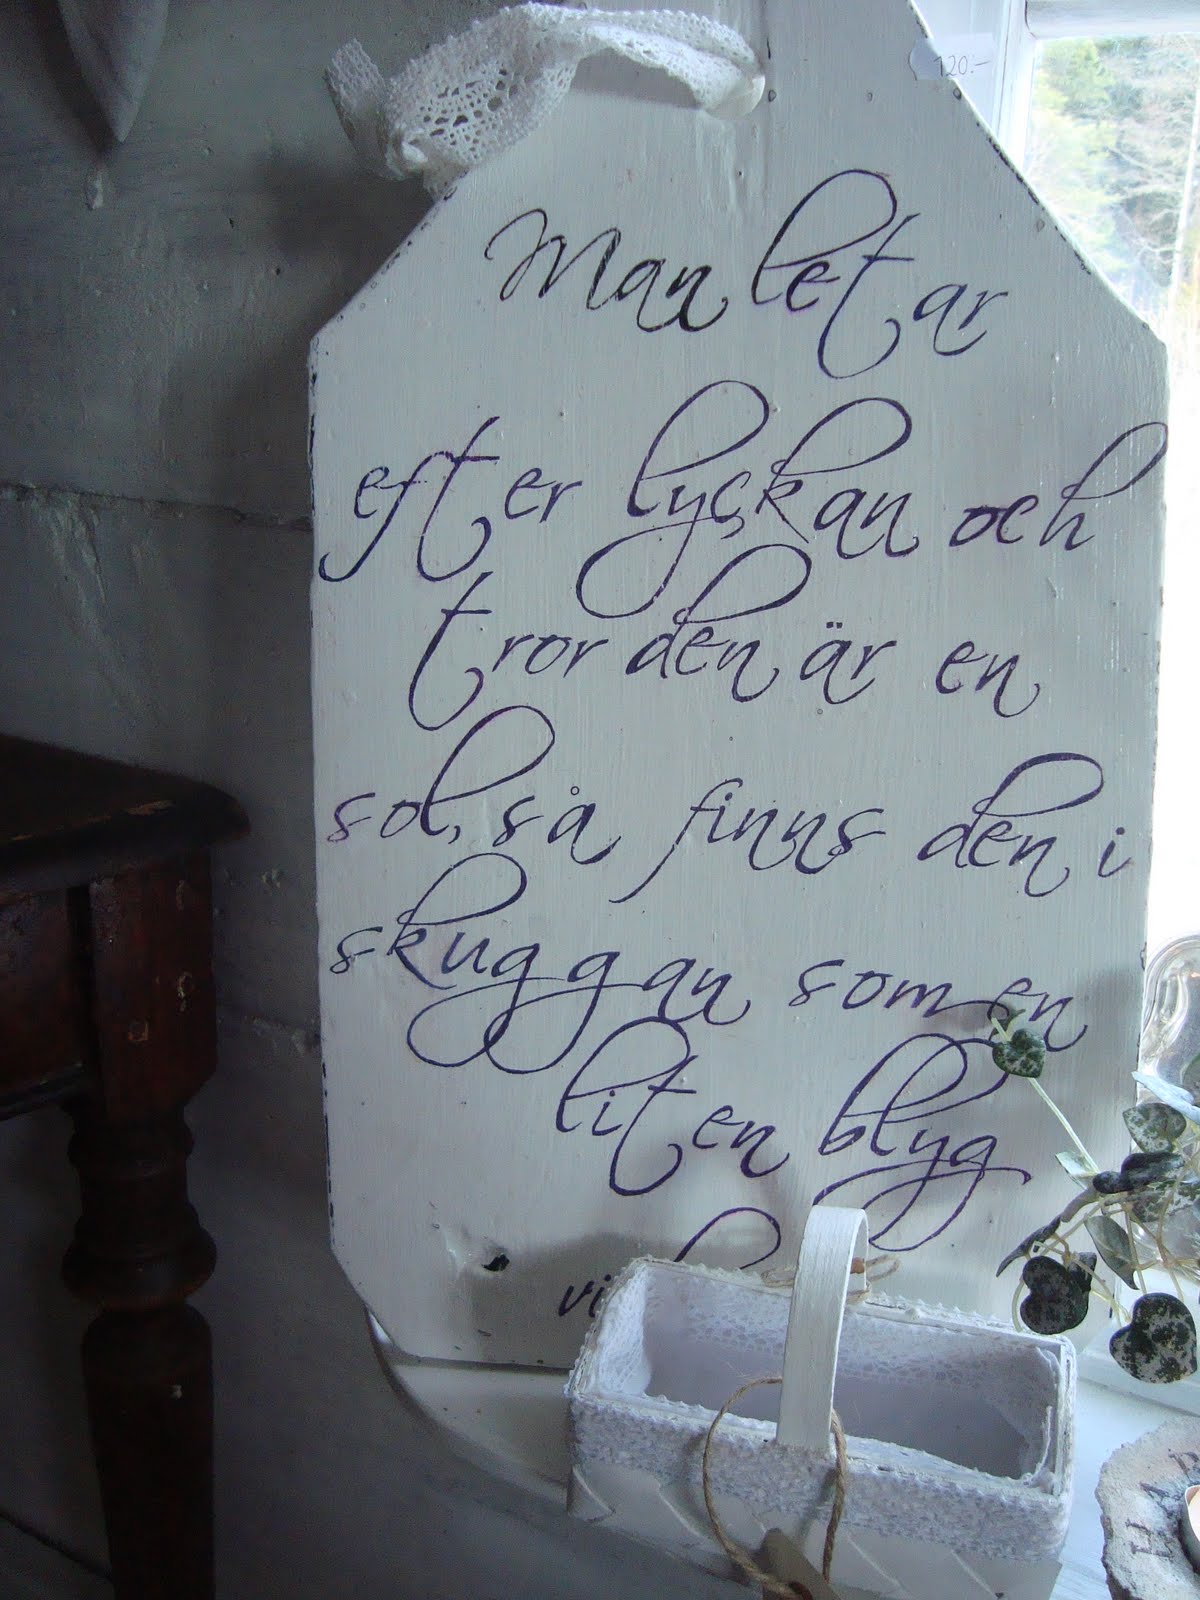 120.-
Man letar
efter lyckan och
tror den är en
sol, så finns den i
skuggan som en
liten blyg